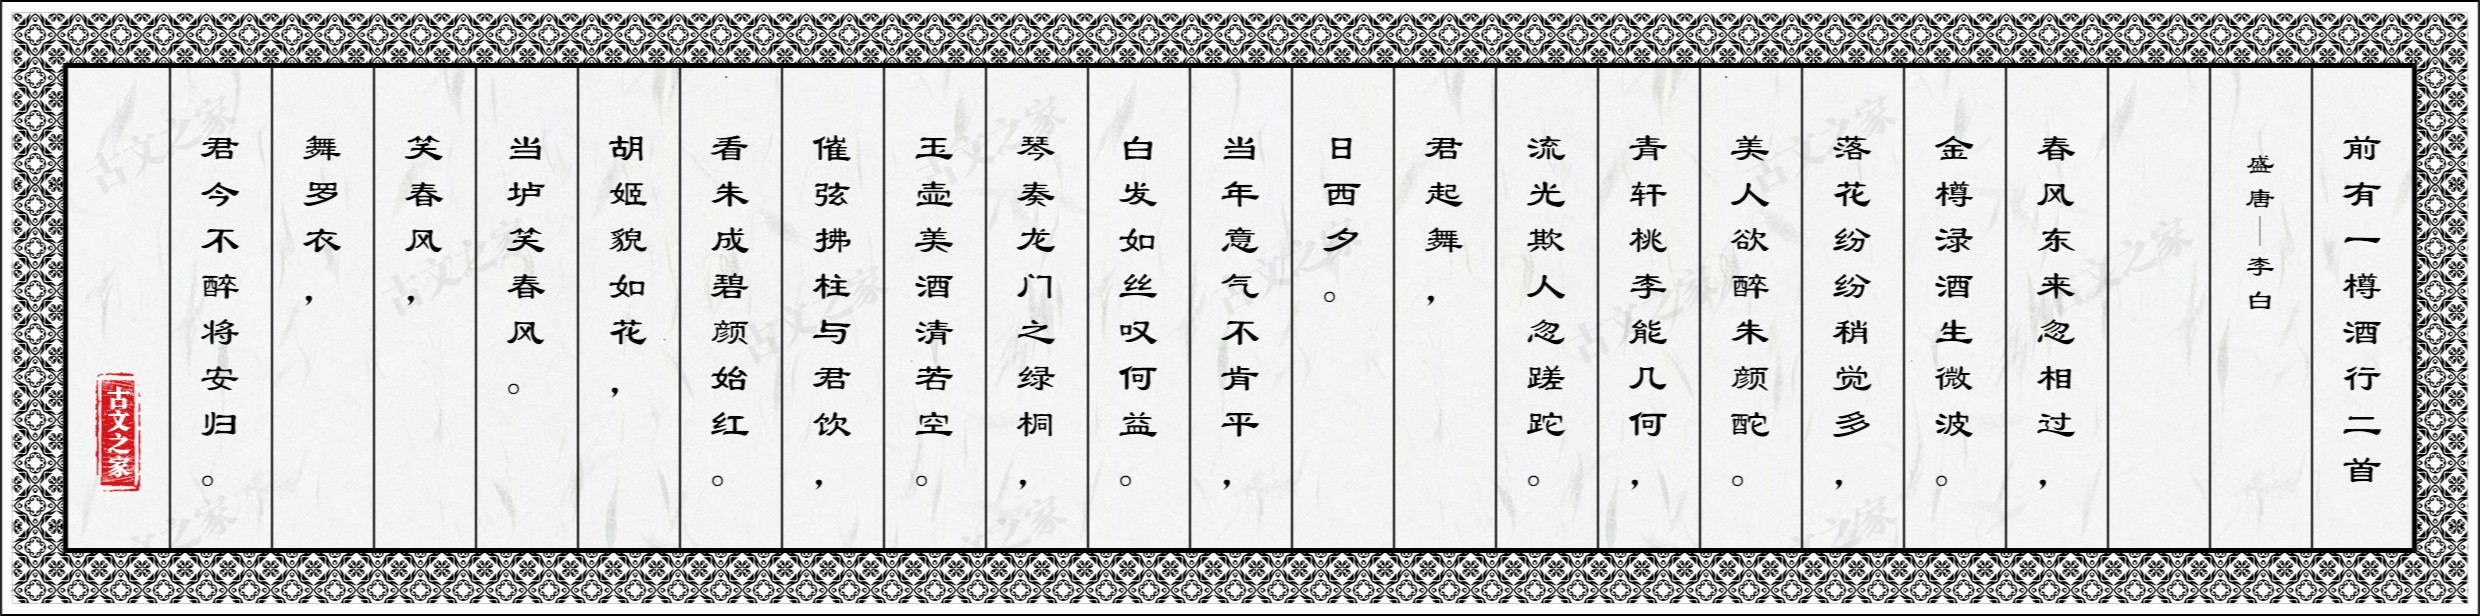 前有一樽酒行二首
盛唐——李白
春风东来忽相过，
金樽渌酒生微波。
落花纷纷稍觉多，
美人欲醉朱颜酡。
青轩桃李能几何，
流光欺人忽蹉跎。
君起舞，
日西夕。
当年意气不肯平，
白发如丝叹何益。
琴奏龙门之绿桐，
玉壶美酒清若空。
催弦拂柱与君饮，
看朱成碧颜始红。
胡姬貌如花，
当垆笑春风。
笑春风，
舞罗衣，
君今不醉将安归。
古文之家